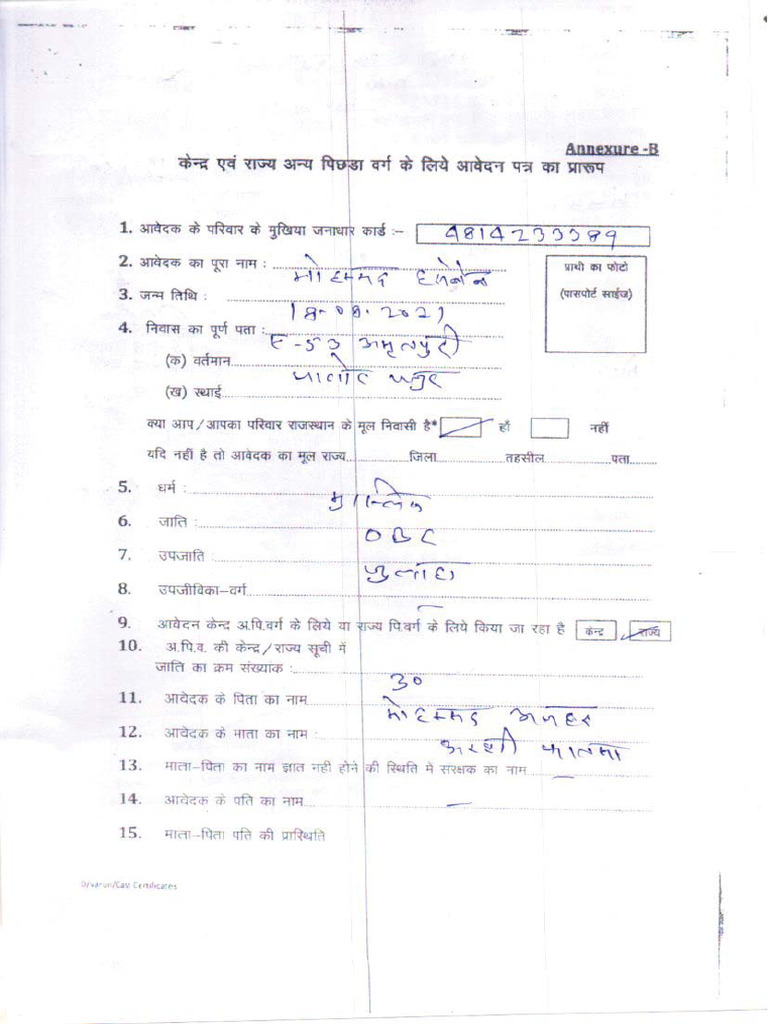 Annexure -B
केन्द्र एवं राज्य अन्य पिछडा वर्ग के लिये आवेदन पत्र का प्रारूप
1. आवेदक के परिवार के मुखिया जनाधार कार्ड :– 4814233389
2. आवेदक का पूरा नाम : मोहम्मद
प्रार्थी का फोटो
(पासपोर्ट साईज)
3. जन्म तिथि : 18-08-2021
4. निवास का पूर्ण पता : E-53 अमृतपुरी
(क) वर्तमान
(ख) स्थाई
क्या आप/आपका परिवार राजस्थान के मूल निवासी है* हाँ नहीं
यदि नहीं है तो आवेदक का मूल राज्य जिला तहसील पता
5. धर्म : मुस्लिम
6. जाति : OBC
7. उपजाति : जुलाहा
8. उपजीविका–वर्ग –
9. आवेदन केन्द्र अ.पि.वर्ग के लिये या राज्य पि.वर्ग के लिये किया जा रहा है केन्द्र राज्य
10. अ.पि.व. की केन्द्र/राज्य सूची में
जाति का क्रम संख्यांक : 30
11. आवेदक के पिता का नाम मोहम्मद अजहर
12. आवेदक के माता का नाम : अरशी फातमा
13. माता–पिता का नाम ज्ञात नही होने की स्थिति मे सरक्षक का नाम –
14. आवेदक के पति का नाम –
15. माता–पिता पति की प्रास्थिति
D/varun/Cast Certificates